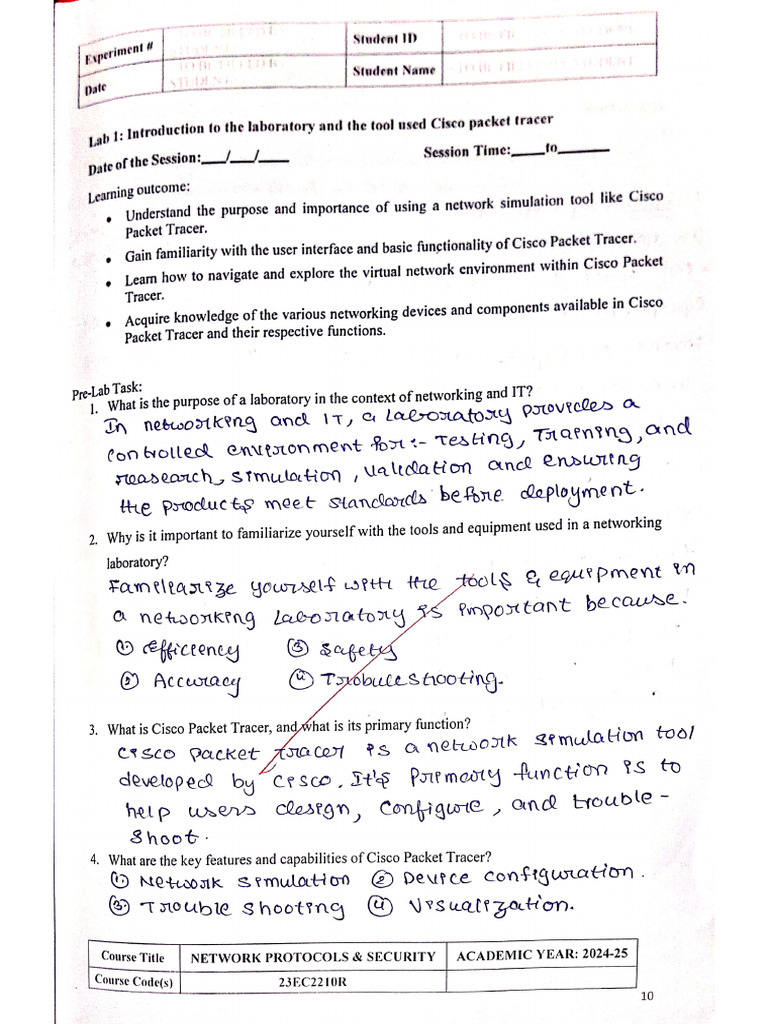 Experiment #
Student ID
Date
Student Name
Lab 1: Introduction to the laboratory and the tool used Cisco packet tracer
Date of the Session:___/___/____ Session Time:_____to________
Learning outcome:
• Understand the purpose and importance of using a network simulation tool like Cisco
Packet Tracer.
• Gain familiarity with the user interface and basic functionality of Cisco Packet Tracer.
• Learn how to navigate and explore the virtual network environment within Cisco Packet
Tracer.
• Acquire knowledge of the various networking devices and components available in Cisco
Packet Tracer and their respective functions.
Pre-Lab Task:
1. What is the purpose of a laboratory in the context of networking and IT?
In networking and IT, a laboratory provides a
controlled environment for:- Testing, Training, and
reasearch, simulation, validation and ensuring
the products meet standards before deployment.
2. Why is it important to familiarize yourself with the tools and equipment used in a networking
laboratory?
Familiarize yourself with the tools & equipment in
a networking laboratory is important because.
① Efficiency ③ Safety
② Accuracy ④ Trobuleshooting.
3. What is Cisco Packet Tracer, and what is its primary function?
Cisco packet tracer is a network simulation tool
developed by Cisco. It's Primary function is to
help users design, configure, and trouble-
shoot.
4. What are the key features and capabilities of Cisco Packet Tracer?
① Network simulation ② Device configuration.
③ Trouble shooting ④ Visualization.
Course Title NETWORK PROTOCOLS & SECURITY ACADEMIC YEAR: 2024-25
Course Code(s) 23EC2210R
10